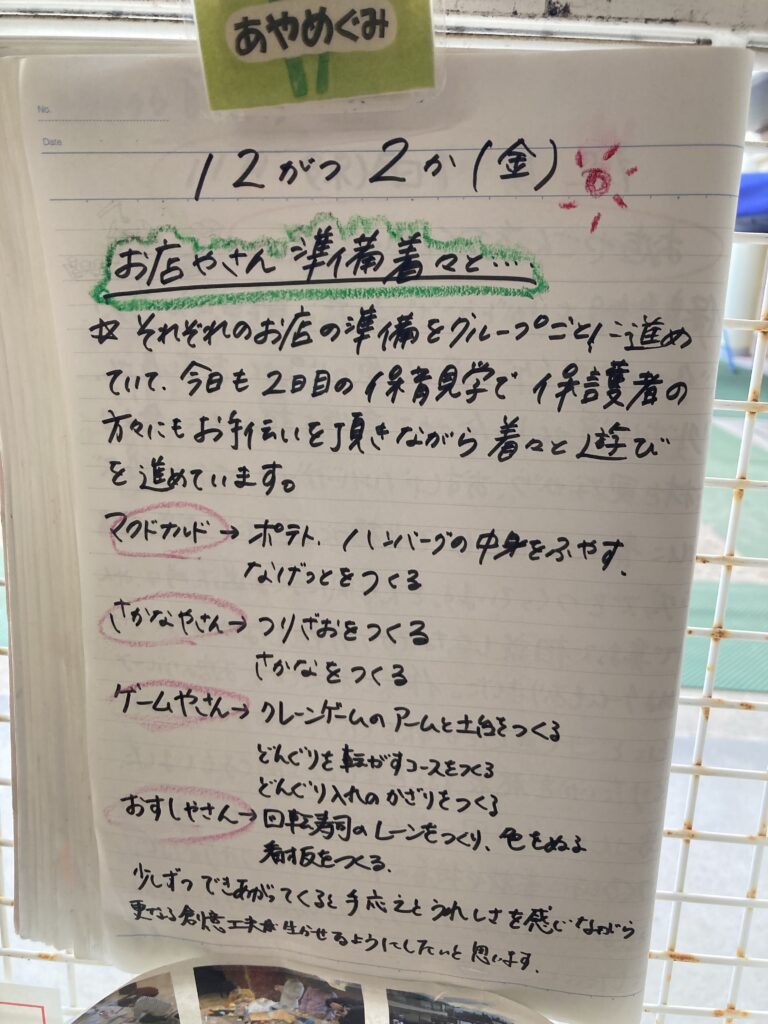 あやめぐみ
No.
Date
12がつ 2か(金)
お店やさん 準備着々と…
☆それぞれのお店の準備をグループごとに進め
ていて、今日も2日目の保育見学で保護者の
方々にもお手伝いを頂きながら着々と遊び
を進めています。
マクドナルド→ポテト、ハンバーグの中身をふやす、
なげっとをつくる
さかなやさん→つりざおをつくる
さかなをつくる
ゲームやさん→クレーンゲームのアームと土台をつくる
どんぐりを転がすコースをつくる
どんぐり入れのかざりをつくる
おすしやさん→回転寿司のレーンをつくり、色をぬる
看板をつくる、
少しずつできあがってくると手応えとうれしさを感じながら
更なる創意工夫が生かせるようにしたいと思います。